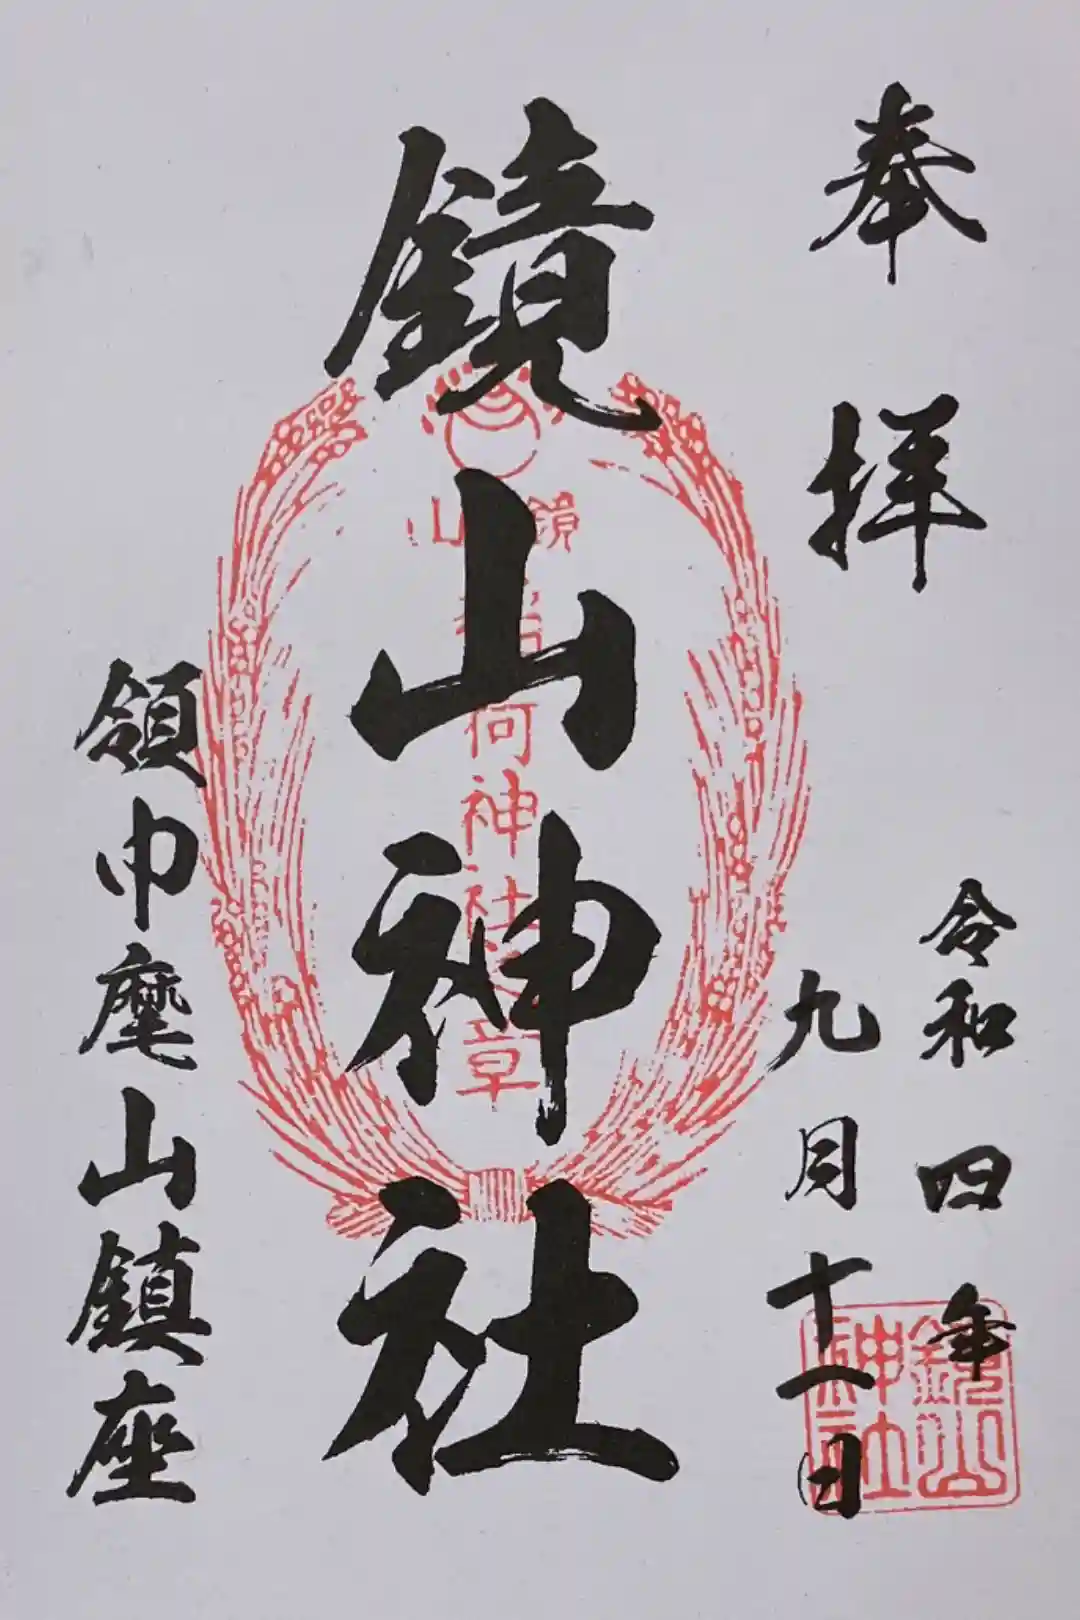 奉拝
令和四年
九月十一日
鏡山神社
領巾麾山鎮座
鏡山
稲荷神社之章
鏡山
神社